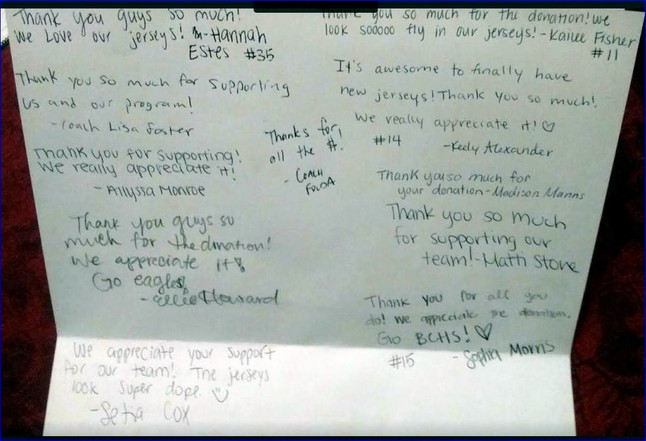 Thank you guys so much!
We Love our jerseys! -Hannah
Estes #35
Thank you so much for supporting
us and our program!
- Coach Lisa Foster
Thank you for supporting!
We really appreciate it!
- Allyssa Monroe
Thank you guys so
much for the donation!
We appreciate it!
Go eagles!
- Ellie Howard
We appreciate your support
for our team! The jerseys
look super dope.
-Setra Cox
Thanks for
all the #.
- Coach
Thank you so much for the donation! We
look sooooo fly in our jerseys! -Kailee Fisher
#11
It's awesome to finally have
new jerseys! Thank you so much!
We really appreciate it! ♡
#14
-Keely Alexander
Thank you so much for
your donation -Madison Manns
Thank you so much
for supporting our
team! -Matti Stone
Thank you for all you
do! We appreciate the donation.
Go BCHS! ♡
#15 - Sophia Morris